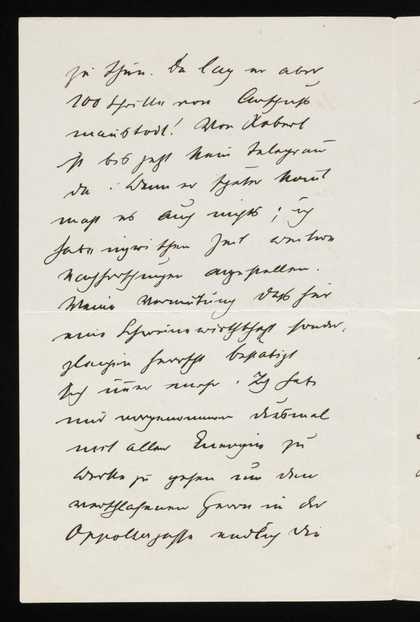 zu thun. Da lag er aber
100 Schritte vom Anschuß
mausetodt! Von Robert
ist bis jetzt kein Telegram
da. Wenn er später kommt
macht es auch nichts; ich
habe inzwischen Zeit weitere
Nachforschungen anzustellen.
Meine Vermutung daß hier
eine Schweinewirthschaft sonder-
gleichen herrscht bestätigt
sich immer mehr. Ich habe
mir vorgenommen diesmal
mit aller Energie zu
Werke zu gehen um den
verschlafenen Herren in der
endlich die